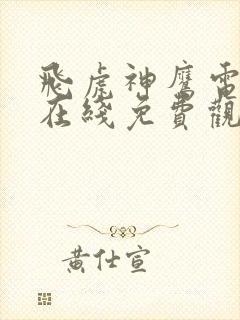 飛虎神鷹電
在綫免費觀
黄仕宣